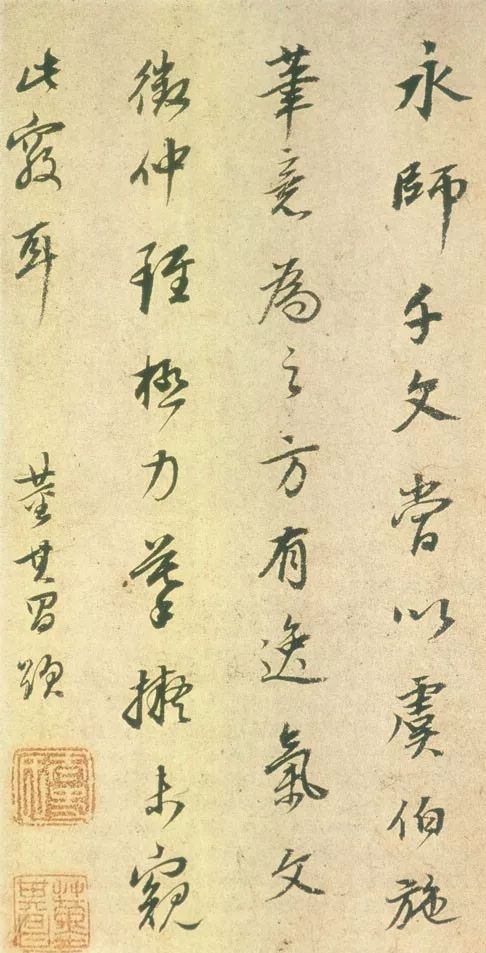 永師千文當以虞伯施
筆意為之方有逸氣文
徵仲雖極力摹擬未窺
此竅耳 董其昌題